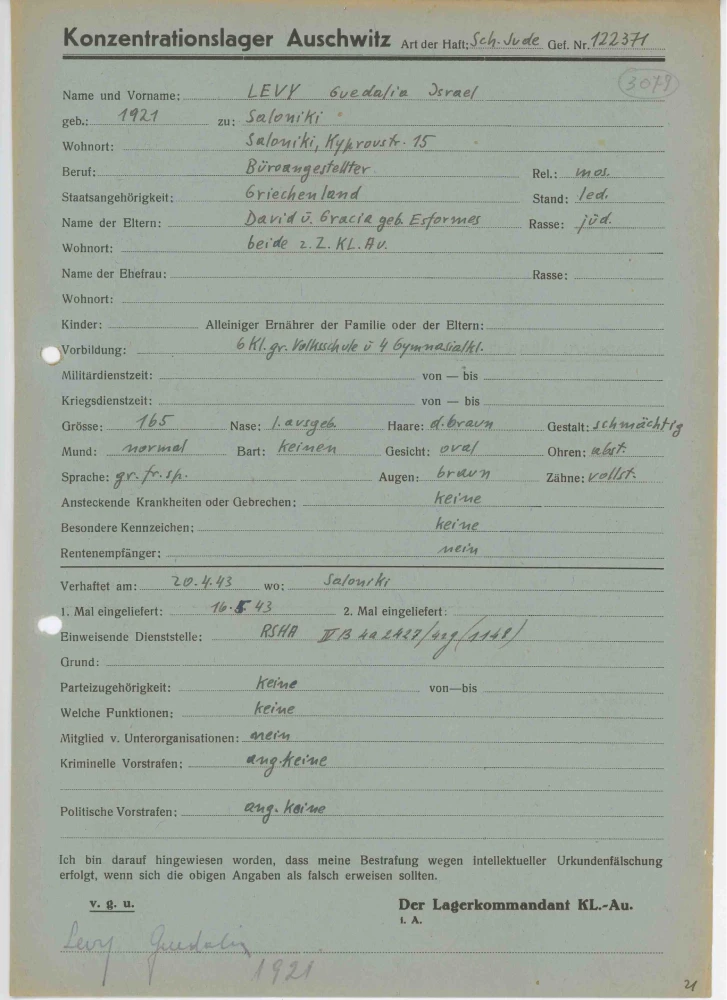 Konzentrationslager Auschwitz Art der Haft: Sch. Jude Gef. Nr. 122371
3079
Name und Vorname: LEVY Guedalia Israel
geb.: 1921 zu: Saloniki
Wohnort: Saloniki, Kyprovstr. 15
Beruf: Büroangestellter Rel.: mos.
Staatsangehörigkeit: Griechenland Stand: led.
Name der Eltern: David u. Gracia geb. Esformes Rasse: jüd.
Wohnort: beide z. Z. KL. Au.
Name der Ehefrau: Rasse:
Wohnort:
Kinder: Alleiniger Ernährer der Familie oder der Eltern:
Vorbildung: 6 Kl. gr. Volksschule u 4 Gymnasialkl.
Militärdienstzeit: von — bis
Kriegsdienstzeit: von — bis
Grösse: 165 Nase: l. ausgeb. Haare: d. braun Gestalt: schmächtig
Mund: normal Bart: keinen Gesicht: oval Ohren: abst.
Sprache: gr. fr. sp. Augen: braun Zähne: vollst.
Ansteckende Krankheiten oder Gebrechen: keine
Besondere Kennzeichen: keine
Rentenempfänger: nein
Verhaftet am: 20.4.43 wo: Saloniki
1. Mal eingeliefert: 16. 5 43 2. Mal eingeliefert:
Einweisende Dienststelle: RSHA IV B 4a 2427/arg (1148)
Grund:
Parteizugehörigkeit: keine von—bis
Welche Funktionen: keine
Mitglied v. Unterorganisationen: nein
Kriminelle Vorstrafen: ang. keine
Politische Vorstrafen: ang. keine
Ich bin darauf hingewiesen worden, dass meine Bestrafung wegen intellektueller Urkundenfälschung
erfolgt, wenn sich die obigen Angaben als falsch erweisen sollten.
v. g. u. Der Lagerkommandant KL.-Au.
i. A.
Levy Guedalia
1921
21